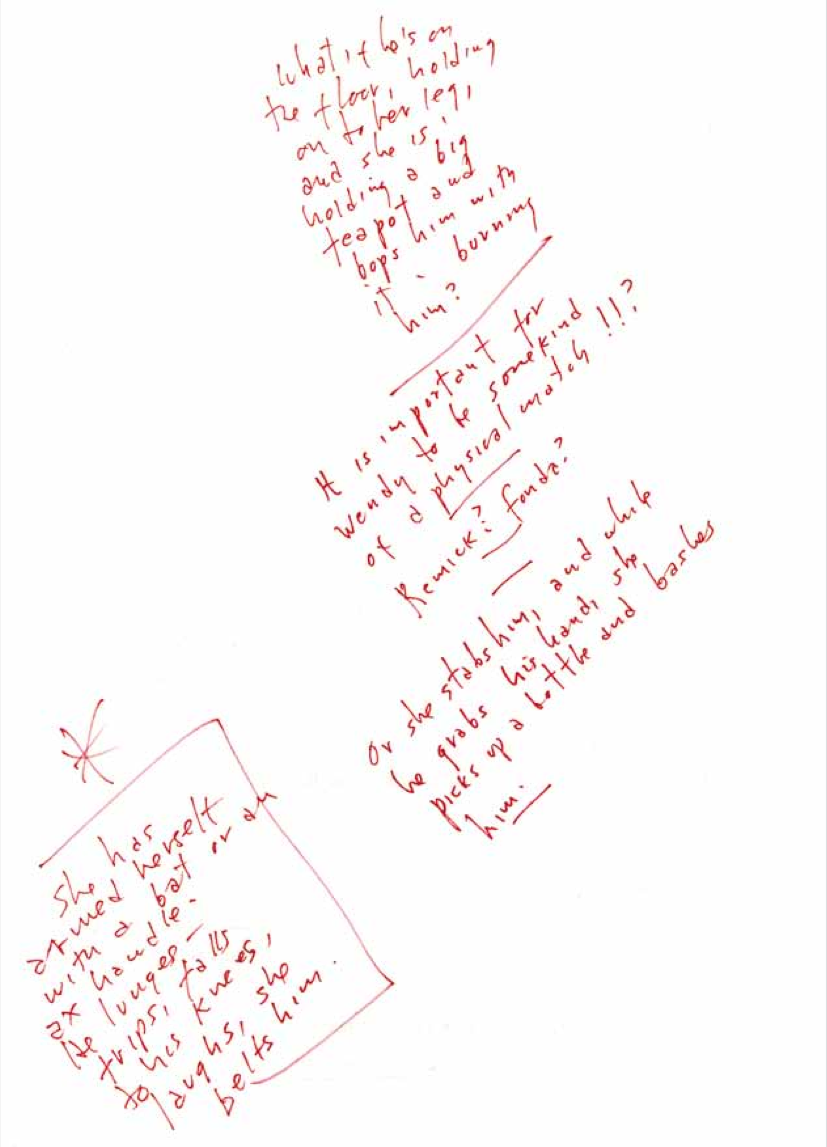 What if he's on
the floor, holding
on to her leg,
and she is
holding a big
teapot and
bops him with
it - burning
him?
It is important for
Wendy to be somekind
of a physical match!!?
Remick? Fonda?
Or she stabs him, and while
he grabs his hand, she
picks up a bottle and bashes
him.
She has
armed herself
with a bat or an
ax handle.
He lunges -
trips, falls
to his knees,
laughs, she
belts him.